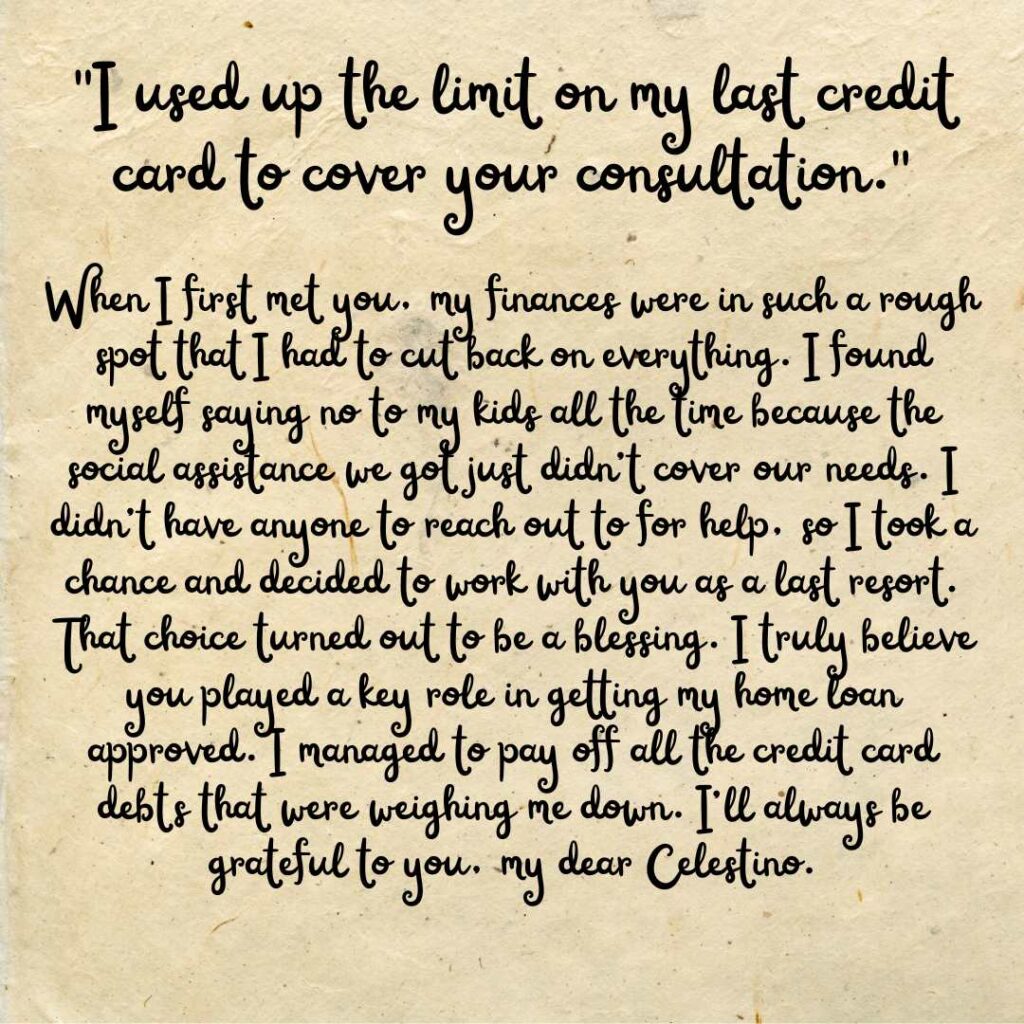 "I used up the limit on my last credit
card to cover your consultation."
When I first met you, my finances were in such a rough
spot that I had to cut back on everything. I found
myself saying no to my kids all the time because the
social assistance we got just didn't cover our needs. I
didn't have anyone to reach out to for help, so I took a
chance and decided to work with you as a last resort.
That choice turned out to be a blessing. I truly believe
you played a key role in getting my home loan
approved. I managed to pay off all the credit card
debts that were weighing me down. I'll always be
grateful to you, my dear Celestino.